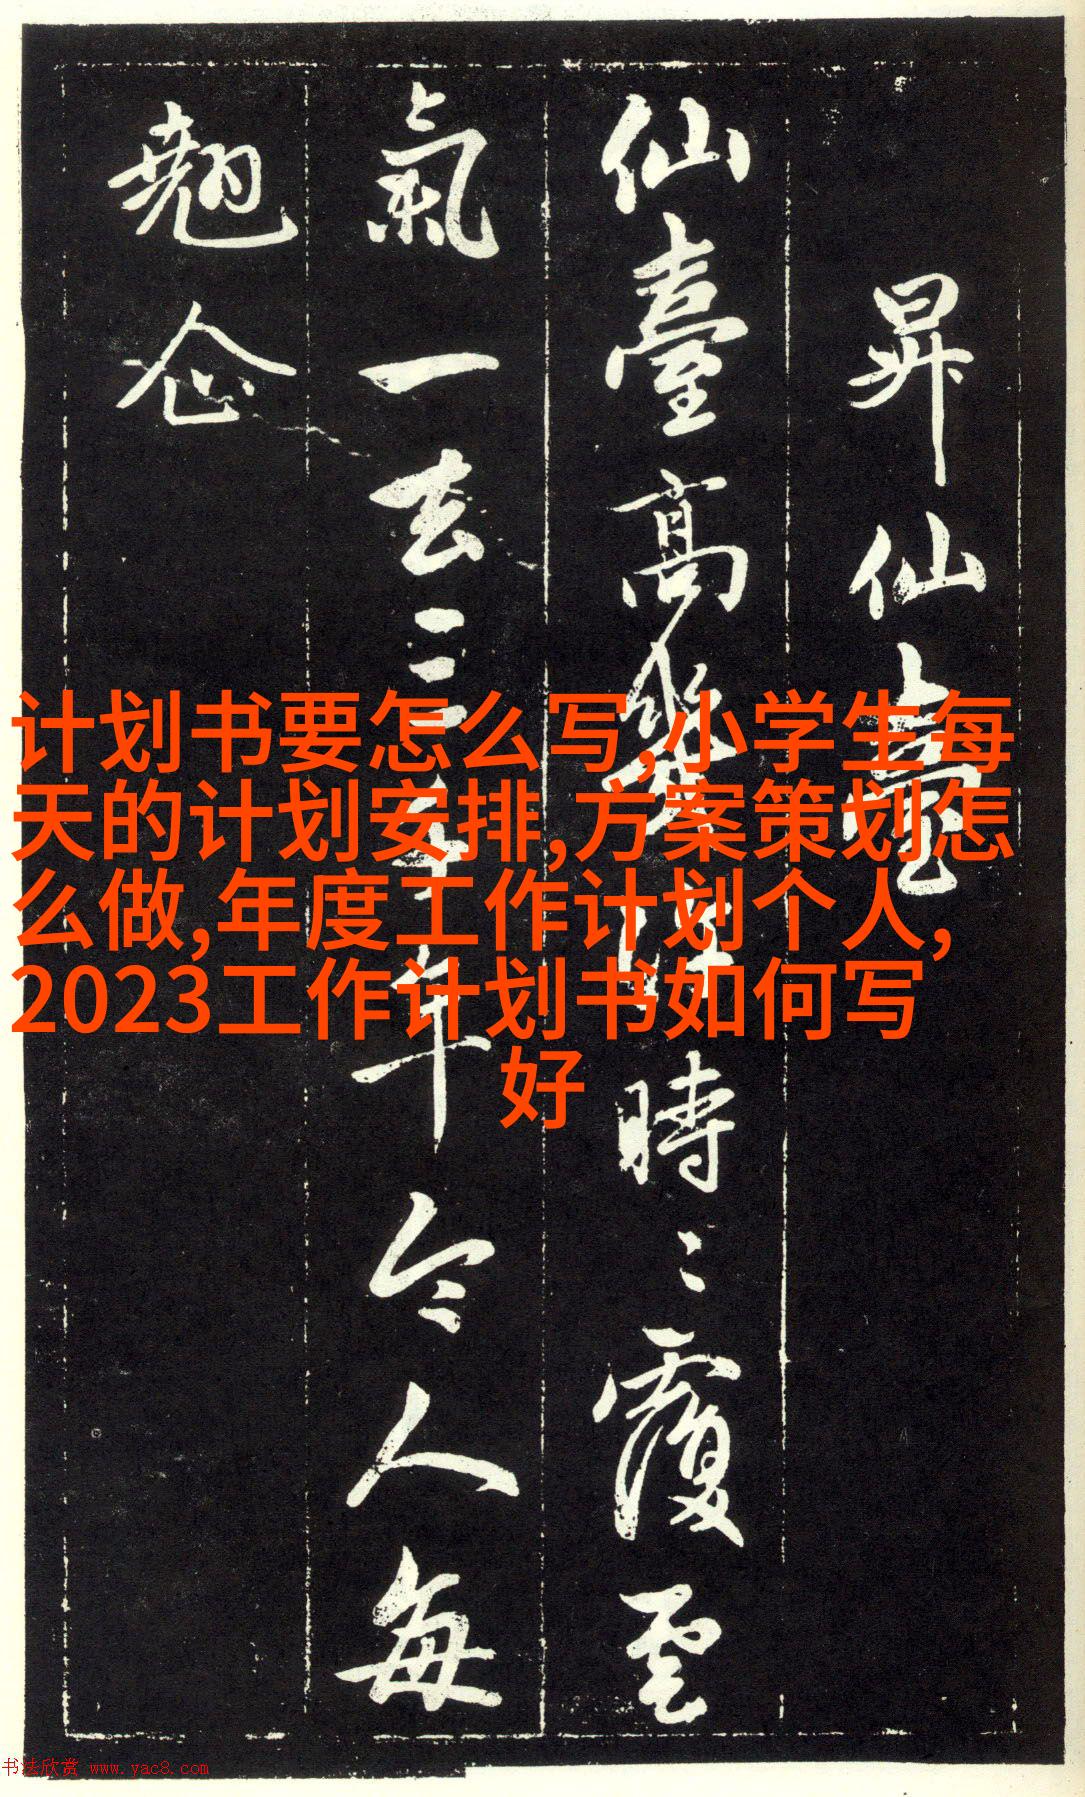 昇仙臺
仙臺高幾許時〻覆雲
氣一去三千年令人每
翹企
计划书要怎么写,小学生每
天的计划安排,方案策划怎
么做,年度工作计划个人,
2023工作计划书如何写
好
书法欣赏 www.yac8.com